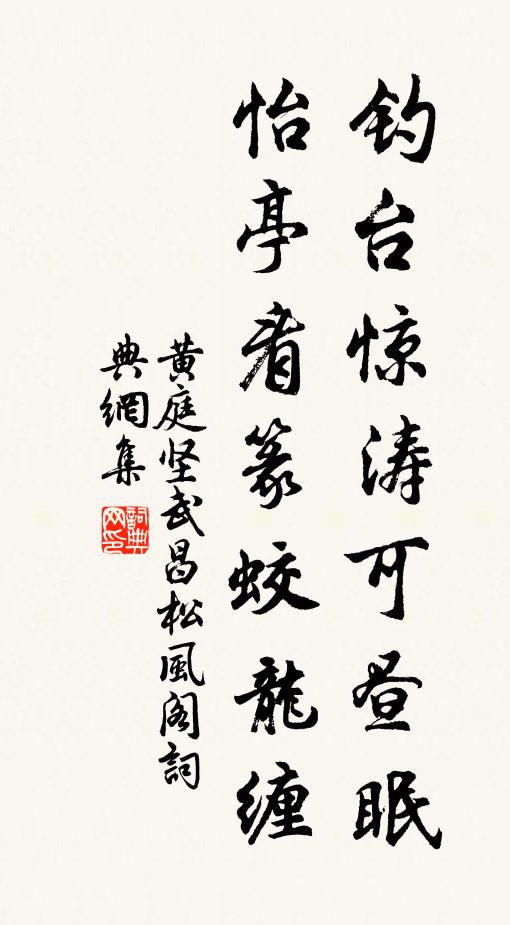 钓台惊涛可昼眠
怡亭看篆蛟龍缠
黄庭坚武昌松風阁詞
典網集
詞典网印